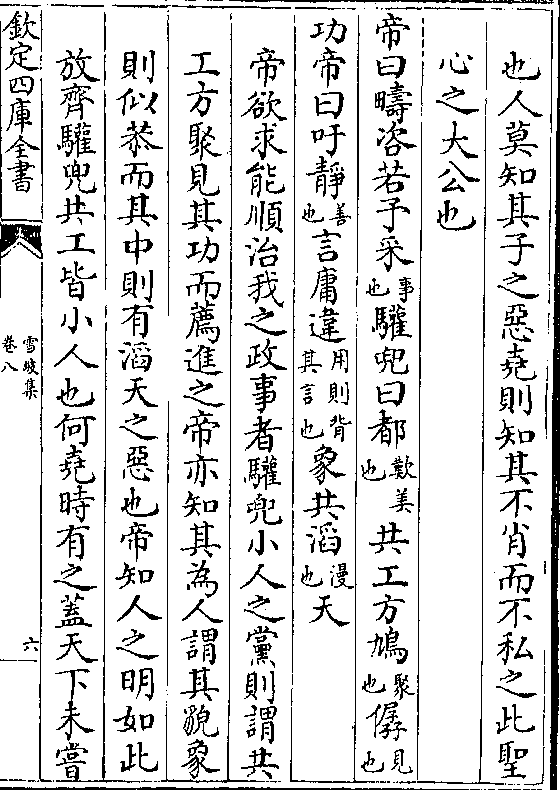 也人莫知其子之惡堯則知其不肖而不私之此聖
心之大公也
帝曰疇咨若予采事也驩兜曰都歎美也共工方鳩聚也僝見也
功帝曰吁靜善也言庸違用則背其言也象共滔漫也天
帝欲求能順治我之政事者驩兜小人之黨則謂共
工方聚見其功而薦進之帝亦知其為人謂其貌象
則似恭而其中則有滔天之惡也帝知人之明如此
放齊驩兜共工皆小人也何堯時有之蓋天下未嘗
欽定四庫全書
雪坡集
卷八
六